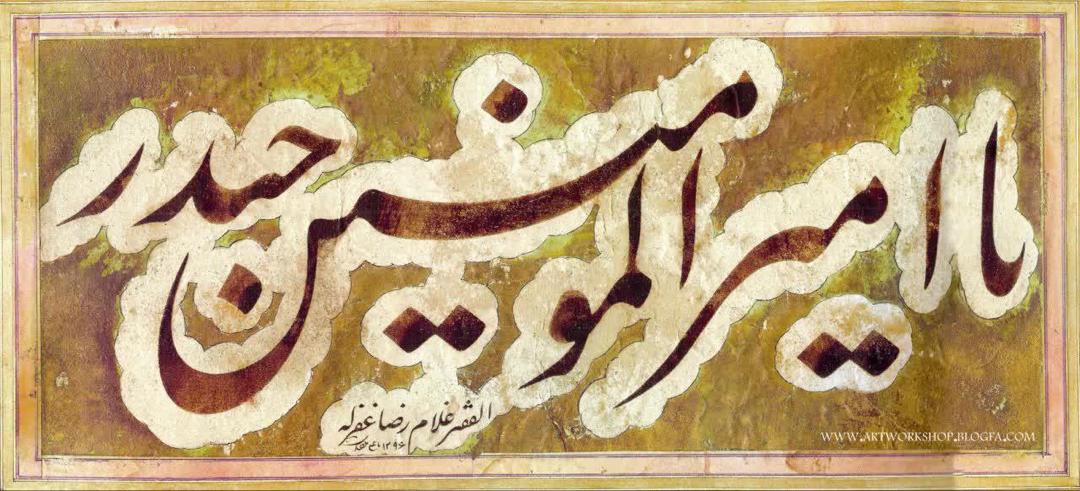 یا امیرالمومنین حیدر
الفقیر غلام رضا غفرله
WWW.ARTWORKSHOP.BLOGFA.COM